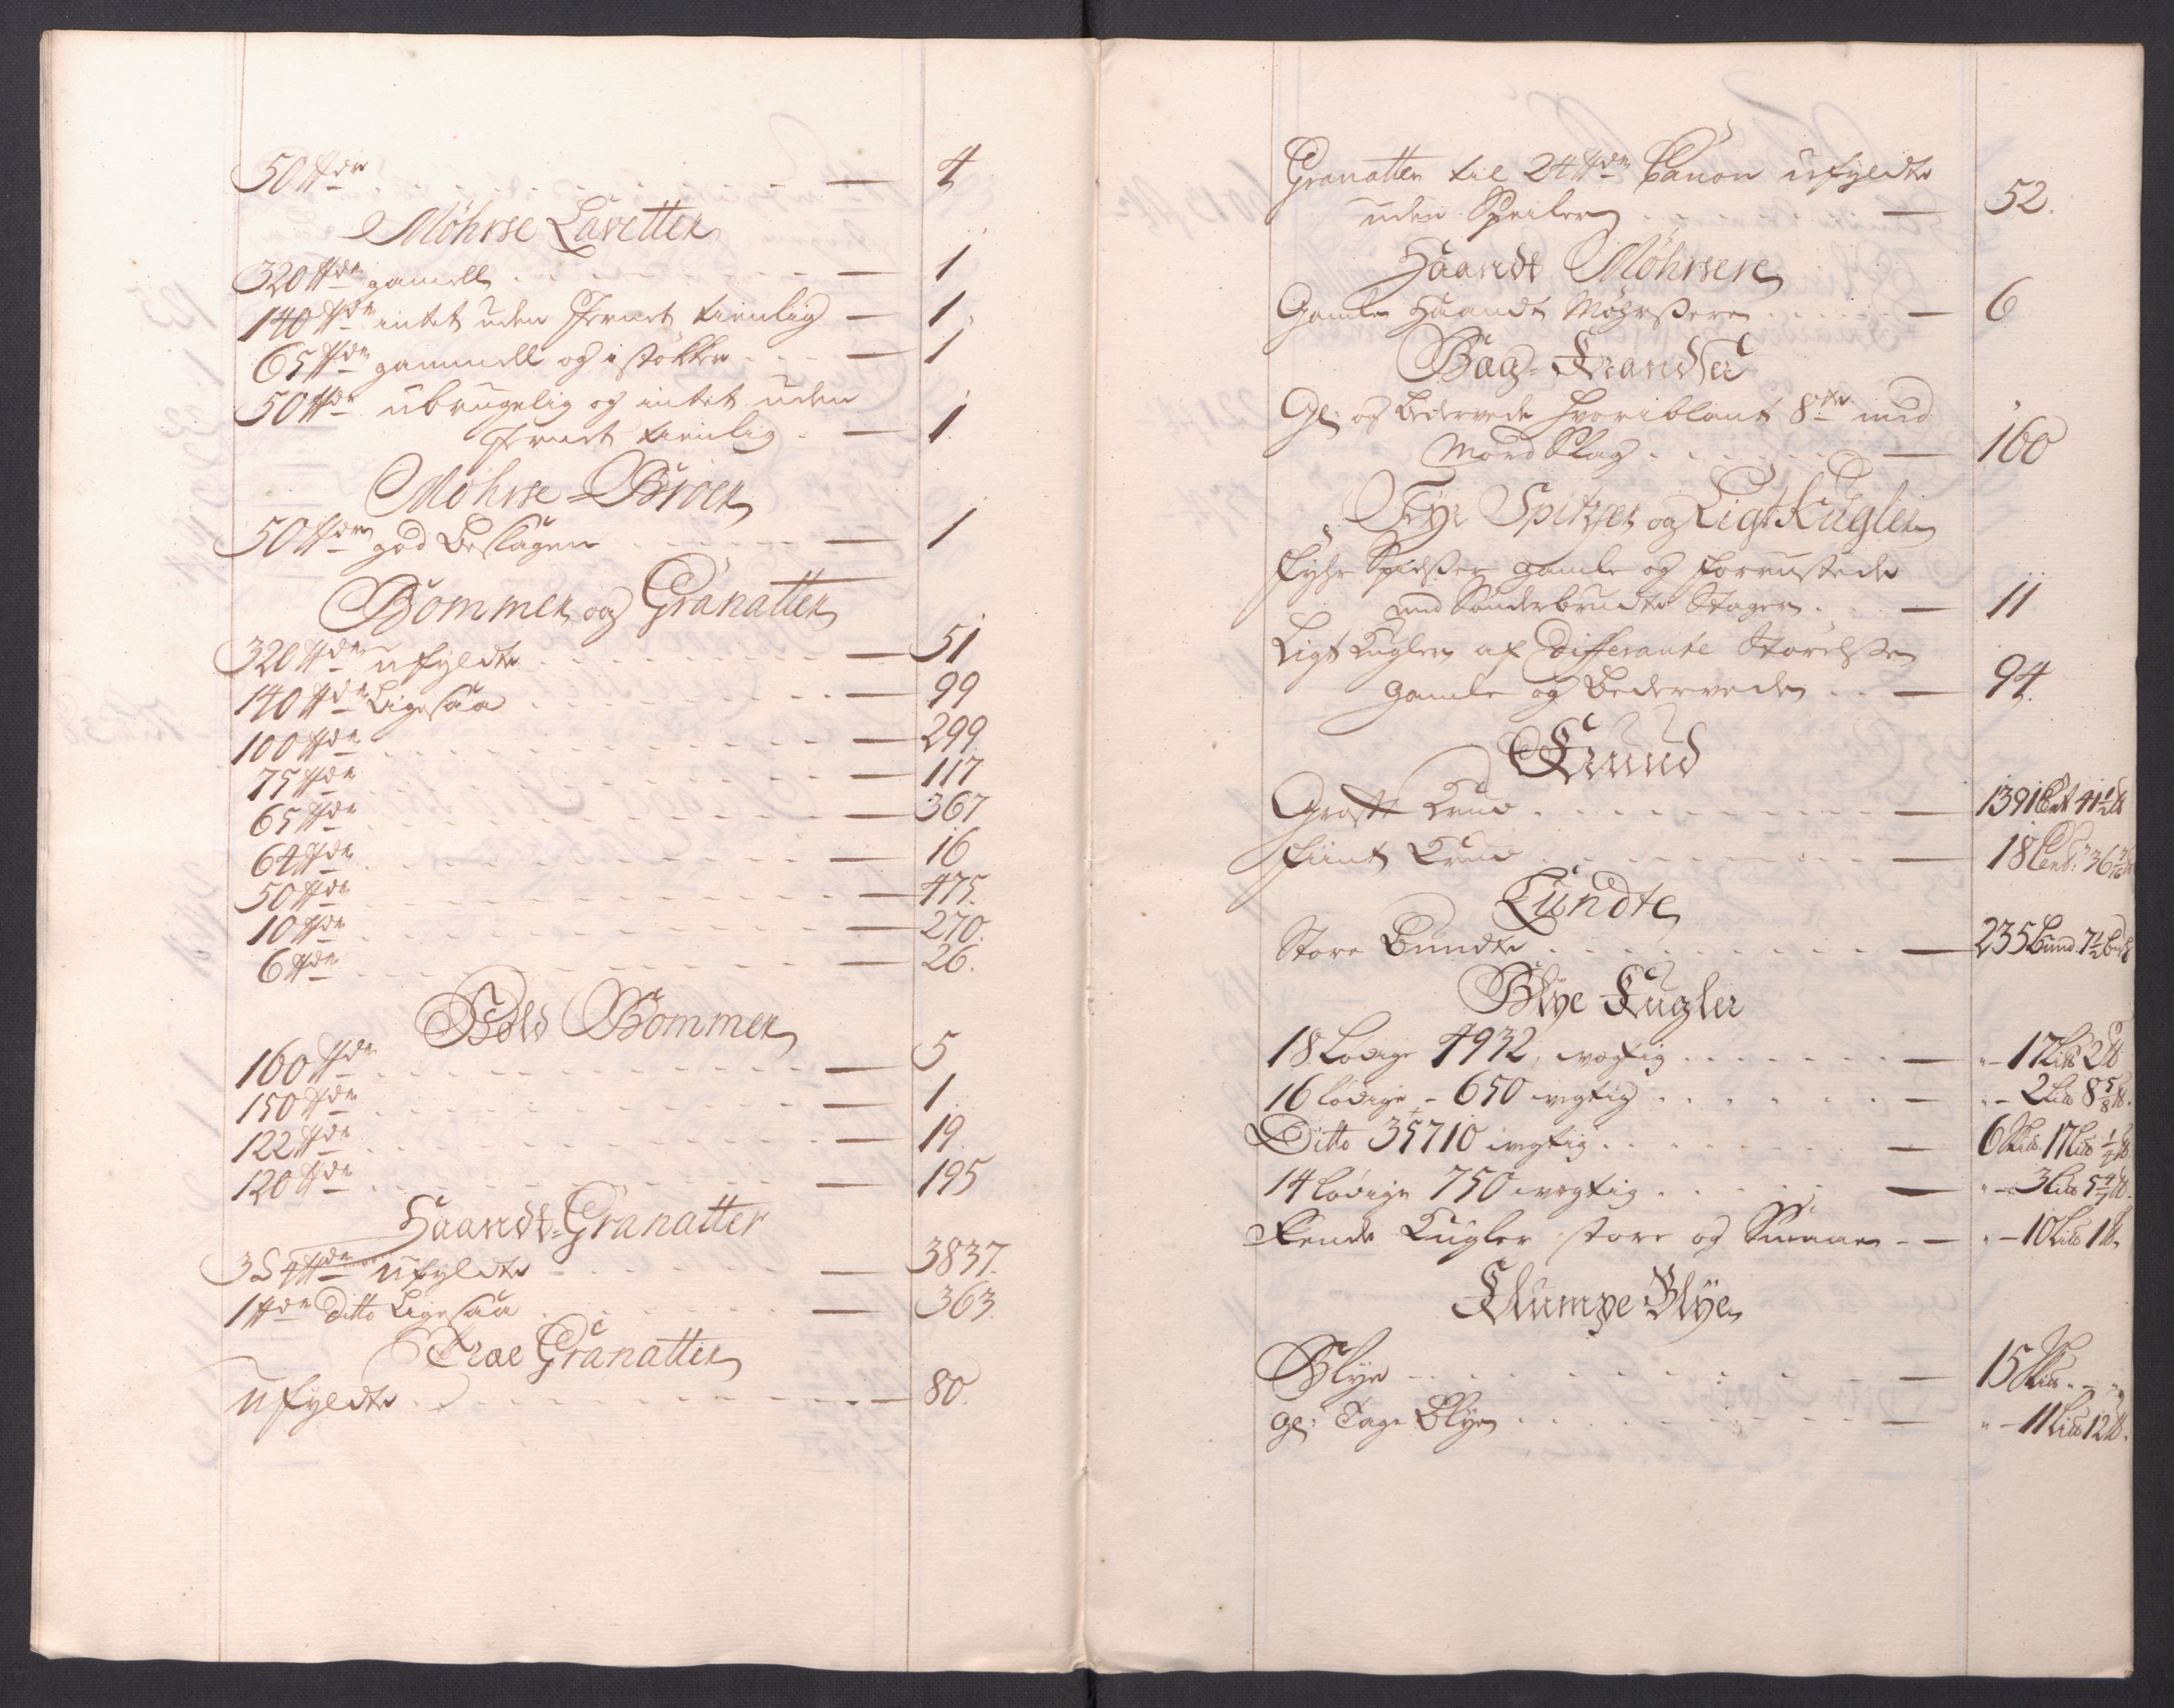 50 ℔dr — 4
Møhrse Lavetter
320 ℔dr gamell — 1
140 ℔dr intet uden Jernet tienlig — 1
65 ℔dr gammell og i støkker — 1
50 ℔dr ubrugelig og intet uden
Jernet tienlig — 1
Møhrse-Broer
50 ℔dr god Beslagen — 1
Bommer og Granatter
320 ℔dr ufyldte — 51
140 ℔dr Ligesaa — 99
100 ℔dr — 299
75 ℔dr — 117
65 ℔dr — 367
64 ℔dr — 16
50 ℔dr — 475.
10 ℔dr — 270.
6 ℔dr — 26.
Bold Bommer
160 ℔dr — 5
150 ℔dr — 1.
122 ℔dr — 19.
120 ℔dr — 195
Haandt-Granatter
3 à 4 ℔dr ufyldte — 3837.
1 ℔dr Ditto Ligesaa — 363.
Træe Granatter
ufyldte — 80.
Granatter til 24 ℔dr Canon ufyldte
uden Speiler — 52.
Haandt Møhrsere
Gamle Haandt Møhrsere — 6
Bag-Krandser
Gl: og bedervede hvoriblant 8te med
Mord Slag — 160
Fyr Spitzer og Ligt Kugler
Fyhr Spidser gamle og forrustede
med Sønderbrudte Stager — 11
Ligt Kugler af Differante Størelser
gamle og bedervede — 94.
Krud
Groft Krud — 1391 Cent 41½ ℔
fiint Krud — 18 Cent: 36
Lundte
Store Bundte — 235 Bund. 7½
Blye Kugler
18 Lødige 4932, vegtig — " - 17 Lis℔ 2 ℔
16 lødige - 650 vegtig — " - 2 Lis℔ 8⅝ ℔.
Ditto 35710 vegtig — 6 Skis℔ 17 Lis℔ ½ ℔
14 lødige 750 vegtig — " - 3 Lis℔ 5 ℔.
Rende Kugler store og Smaae — " - 10 Lis℔ 1 ℔
Klumpe Blye
Blye — 15 Skis℔ . - "
gl: Tage Blye — " - 11 Lis℔ 12 ℔.